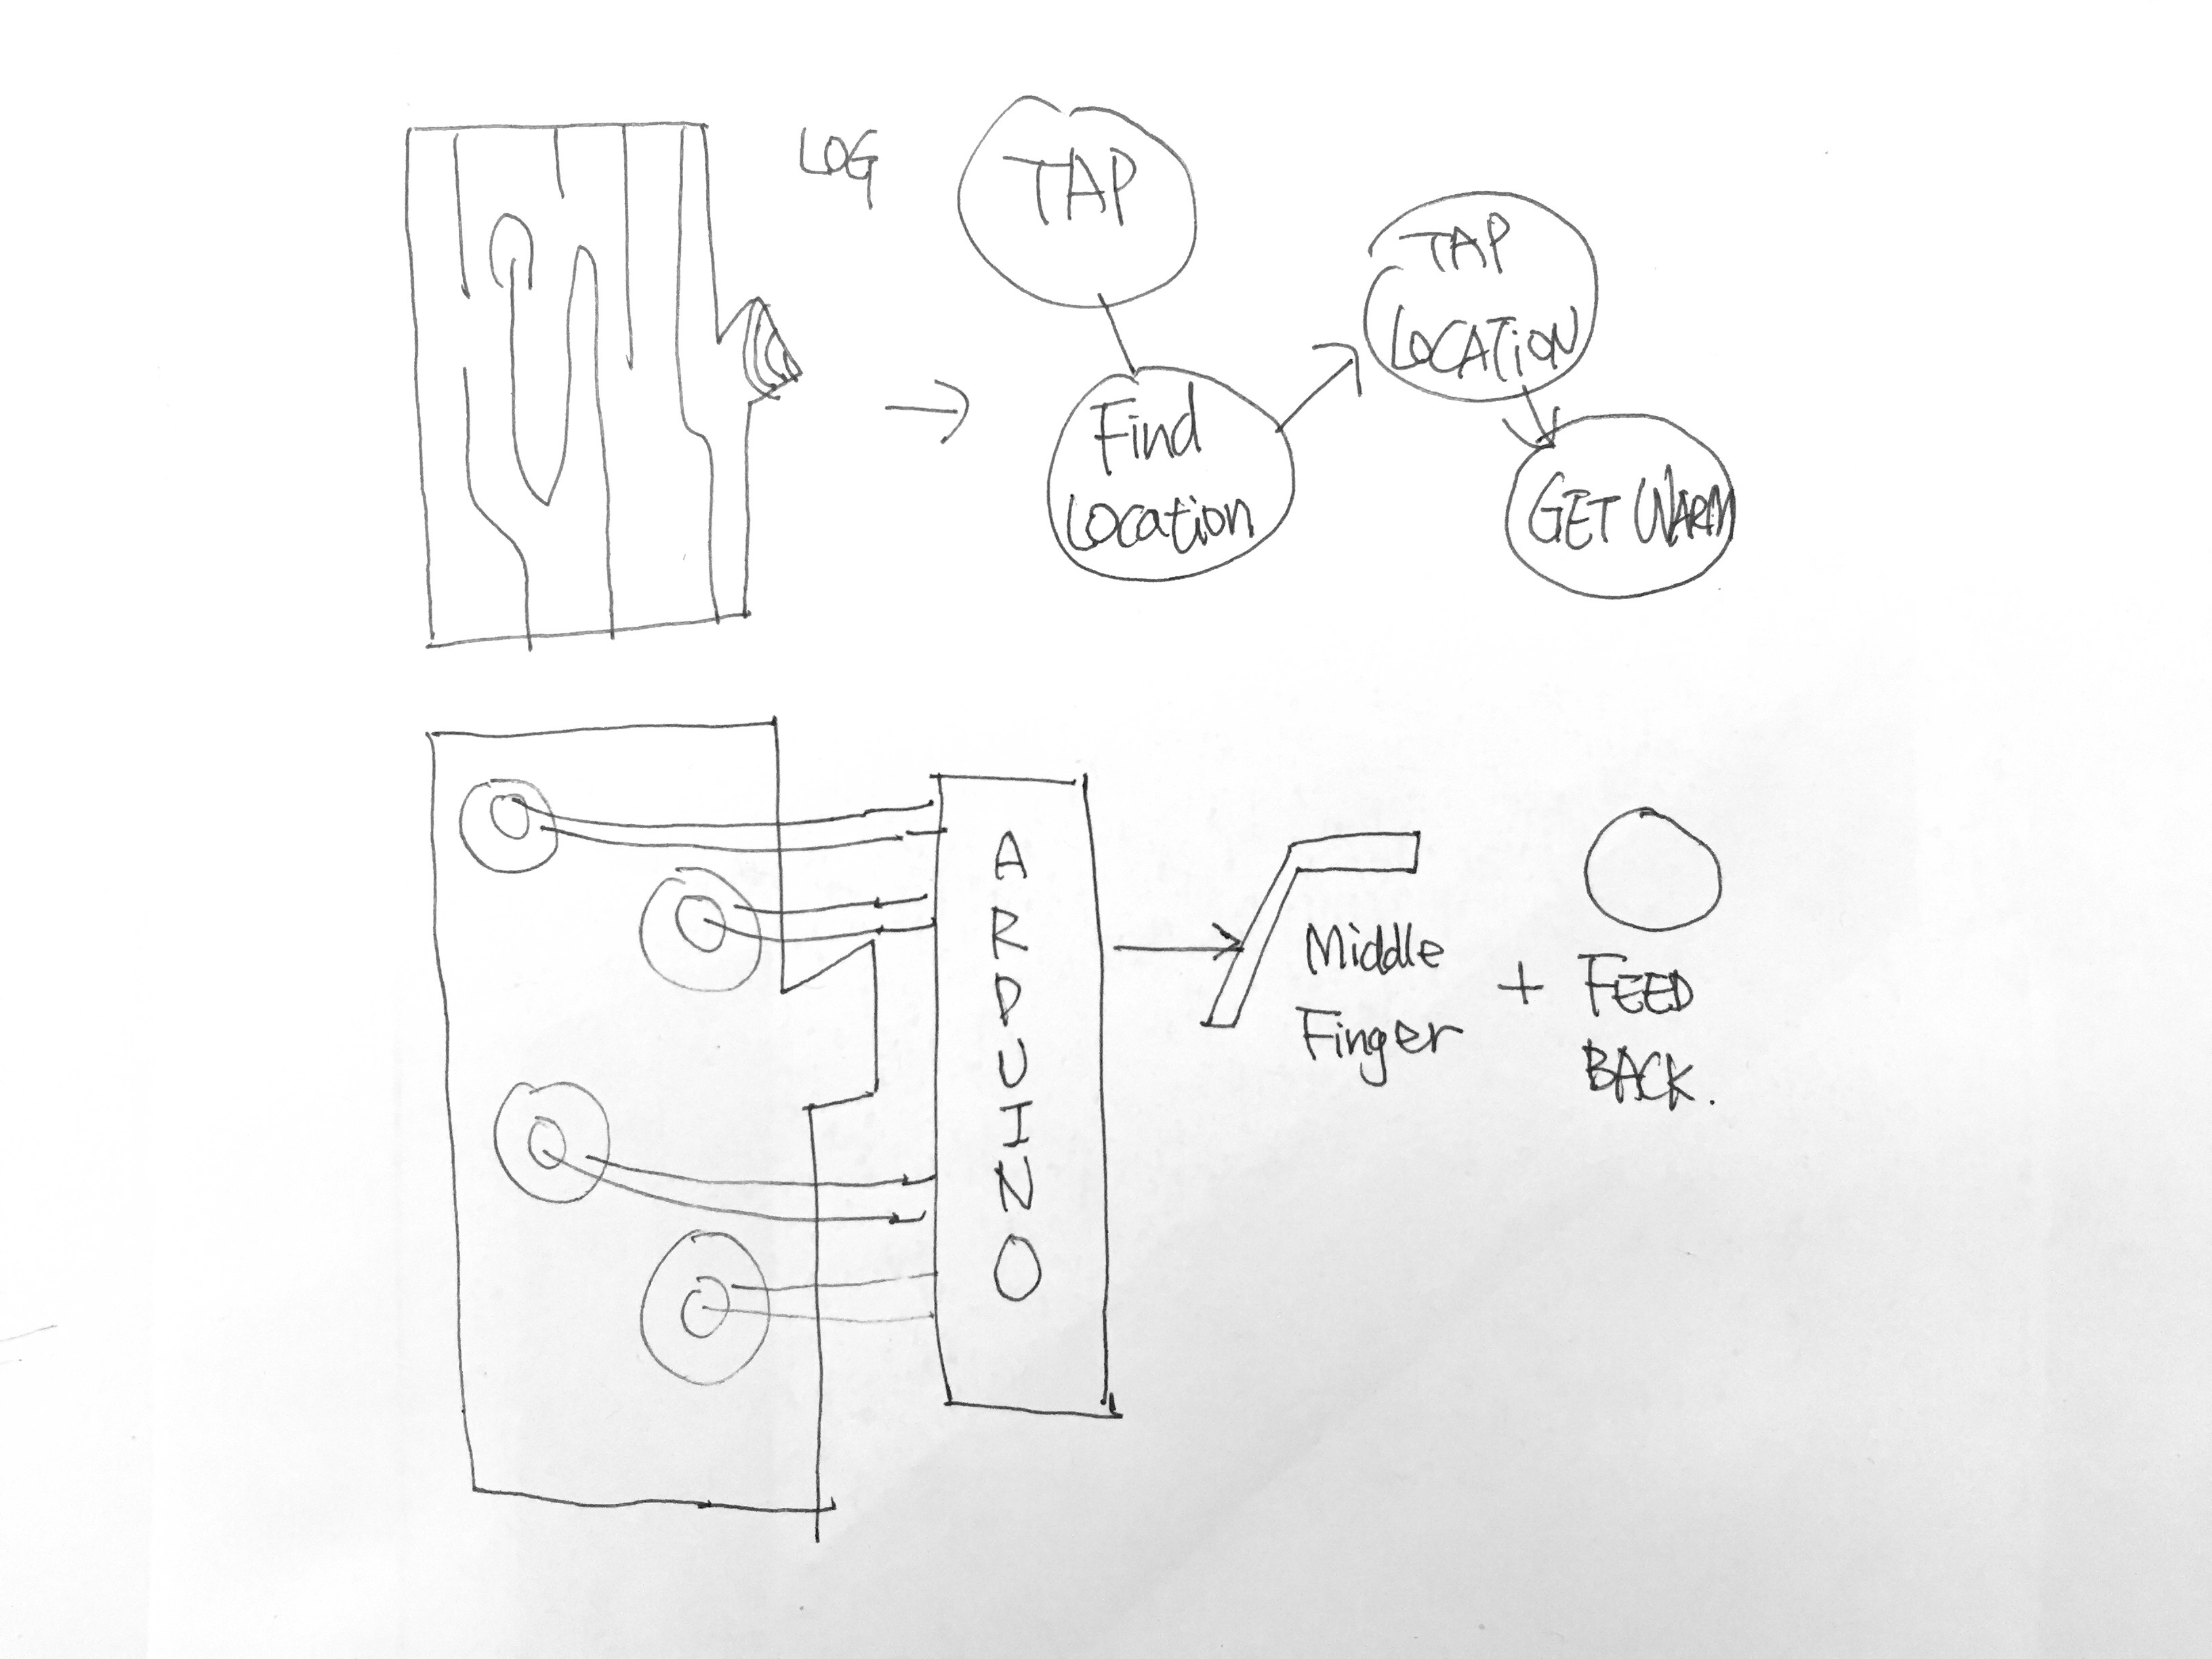 LOG
TAP
Find
Location
TAP
LOCATiON
GET WARM
ARDUINO
Middle
Finger
+
FEED
BACK.